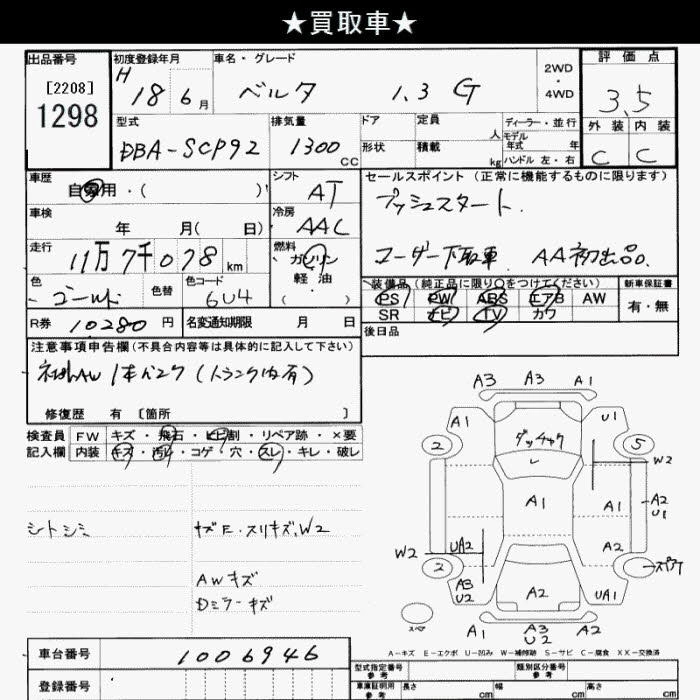 ★買取車★
出品番号
[2208]
1298
初度登録年月
H 18 6 月
車名・グレード
ベルタ 1.3 G
2WD
・
4WD
評価点
3.5
外装 内装
C C
型式
DBA-SCP92
排気量
1300 CC
ドア
形状
定員 人
積載 kg
ディーラー・並行
モデル
年式 年
ハンドル 左・右
車歴
自家用・( )
シフト
AT
車検
年 月( 日)
冷房
AAC
走行
11万7千078 km
燃料
ガソリン
軽油
( )
色
ゴールド
色替
色コード
6U4
R券 10280 円
名変通知期限 月 日
セールスポイント (正常に機能するものに限ります)
プッシュスタート.
ユーザー下取車 AA初出品.
装備品(純正品に限り○をつけてください)
PS PW ABS エアB AW
SR ナビ TV カワ
新車保証書
有・無
後日品
注意事項申告欄(不具合内容等は具体的に記入して下さい)
社外AW 1本パンク (トランク内有)
修復歴 有 〔箇所 〕
検査員
記入欄
FW キズ・飛石・ヒビ割・リペア跡・×要
内装 キズ・汚れ・コゲ・穴・スレ・キレ・破レ
シートシミ
キズE・スリキズ、W2
AWキズ
Dミラーキズ
A3 A3 A1
A1 U1
2 ダッチャク 5
W2
A1 A1 A2
U1
W2 UA2 A2
2 スペア
A3
U2 A2 UA1
スペア
A1 A3 A2
U2
A-キズ E-エクボ U-凹み W-補修跡 S-サビ C-腐食 XX-交換済
車台番号 1006946
登録番号
型式指定番号
参考
類別区分番号
参考
車庫証明用
参考
長さ cm 幅 cm 高さ cm